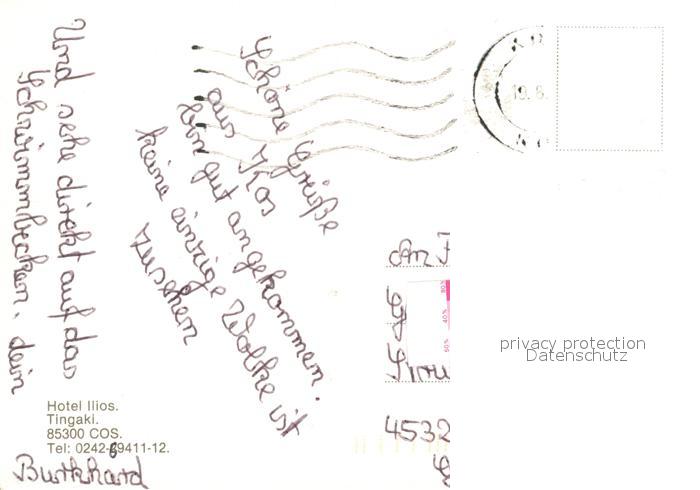 Schöne Grüße
aus Kos
bin gut angekommen.
keine einzige Wolke ist
zusehen
Und sehe direkt auf das
Schwimmbecken. dein
Burkhard
Hotel Ilios.
Tingaki.
85300 COS.
Tel: 0242-69411-12.
19.8.
An F
4532
privacy protection
Datenschutz
80%
40%
60%